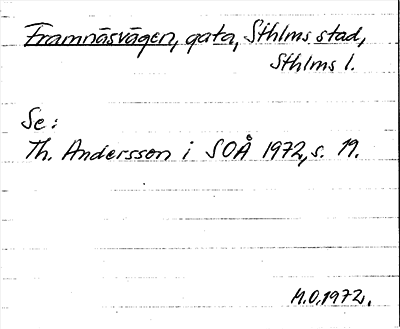 Framnäsvägen, gata, Sthlms stad,
Sthlms l.
Se:
Th. Andersson i SOÅ 1972, s. 19.
M.O.1972.